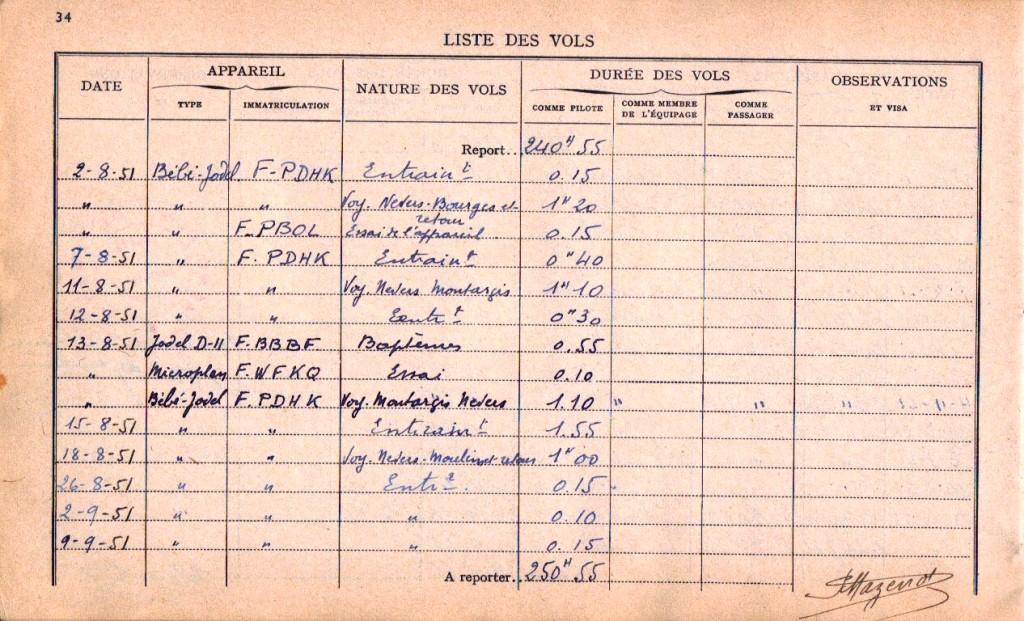 34
LISTE DES VOLS
DATE APPAREIL NATURE DES VOLS DURÉE DES VOLS OBSERVATIONS
TYPE IMMATRICULATION COMME PILOTE COMME MEMBRE DE L'ÉQUIPAGE COMME PASSAGER ET VISA
Report.. 240H 55
2-8-51 Bébé-Jodel F-PDHK Entraint 0.15
" " " Voy. Nevers-Bourges et retour 1H20
" " F.PBOL Essai de l'appareil 0.15
7-8-51 " F.PDHK Entraint 0H40
11-8-51 " " Voy. Nevers Montargis 1H10
12-8-51 " " Entrt 0H30
13-8-51 Jodel D-11 F.BBBF Baptêmes 0.55
" Microplan F.WFKQ Essai 0.10
" Bébé-Jodel F.PDHK Voy. Montargis Nevers 1.10 " " "
15-8-51 " " Entraint 1.55
18-8-51 " " Voy. Nevers-Moulins et retour 1H00
26-8-51 " " Entrt. 0.15
2-9-51 " " " 0.10
9-9-51 " " " 0.15
A reporter.. 250H 55